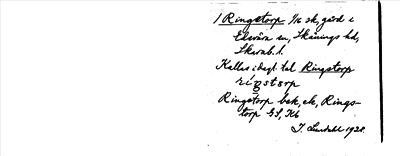 1 Ringstorp 1/16 sk, gård i
Elsvåra sn, Skånings hd,
Skarab. l.
Kallas i dagl. tal Ringstorp
ringstorp
Ringstorp bek, ek, Rings-
torp GS, Kb
J. Lundahl 1928.